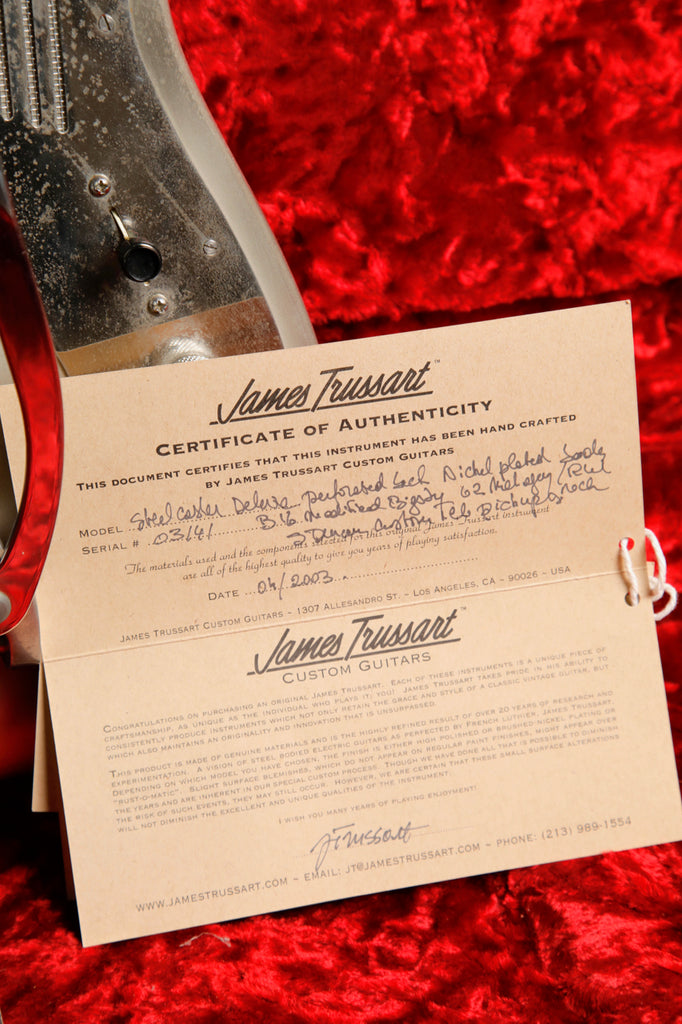 James Trussart™
CERTIFICATE OF AUTHENTICITY
THIS DOCUMENT CERTIFIES THAT THIS INSTRUMENT HAS BEEN HAND CRAFTED
BY JAMES TRUSSART CUSTOM GUITARS
MODEL Steelcaster Deluxe perforated back Nickel plated
SERIAL # 03141 B.16 modified Bigsby
Duncan custom Tele Pickups
The materials used and the components selected for this original James Trussart instrument
are all of the highest quality to give you years of playing satisfaction.
DATE ...04/2003...
JAMES TRUSSART CUSTOM GUITARS ~ 1307 ALLESANDRO ST. ~ LOS ANGELES, CA ~ 90026 ~ USA
James Trussart™
CUSTOM GUITARS
CONGRATULATIONS ON PURCHASING AN ORIGINAL JAMES TRUSSART. EACH OF THESE INSTRUMENTS IS A UNIQUE PIECE OF
CRAFTSMANSHIP, AS UNIQUE AS THE INDIVIDUAL WHO PLAYS IT; YOU! JAMES TRUSSART TAKES PRIDE IN HIS ABILITY TO
CONSISTENTLY PRODUCE INSTRUMENTS WHICH NOT ONLY RETAIN THE GRACE AND STYLE OF A CLASSIC VINTAGE GUITAR, BUT
WHICH ALSO MAINTAINS AN ORIGINALITY AND INNOVATION THAT IS UNSURPASSED.
THIS PRODUCT IS MADE OF GENUINE MATERIALS AND IS THE HIGHLY REFINED RESULT OF OVER 20 YEARS OF RESEARCH AND
EXPERIMENTATION. A VISION OF STEEL BODIED ELECTRIC GUITARS AS PERFECTED BY FRENCH LUTHIER, JAMES TRUSSART.
DEPENDING ON WHICH MODEL YOU HAVE CHOSEN, THE FINISH IS EITHER HIGH POLISHED OR BRUSHED NICKEL PLATING OR
"RUST-O-MATIC". SLIGHT SURFACE BLEMISHES, WHICH DO NOT APPEAR ON REGULAR PAINT FINISHES, MIGHT APPEAR OVER
THE YEARS AND ARE INHERENT IN OUR SPECIAL CUSTOM PROCESS. THOUGH WE HAVE DONE ALL THAT IS POSSIBLE TO DIMINISH
THE RISK OF SUCH EVENTS, THEY MAY STILL OCCUR. HOWEVER, WE ARE CERTAIN THAT THESE SMALL SURFACE ALTERATIONS
WILL NOT DIMINISH THE EXCELLENT AND UNIQUE QUALITIES OF THE INSTRUMENT.
I WISH YOU MANY YEARS OF PLAYING ENJOYMENT!
JTrussart
WWW.JAMESTRUSSART.COM ~ EMAIL: JT@JAMESTRUSSART.COM ~ PHONE: (213) 989-1554